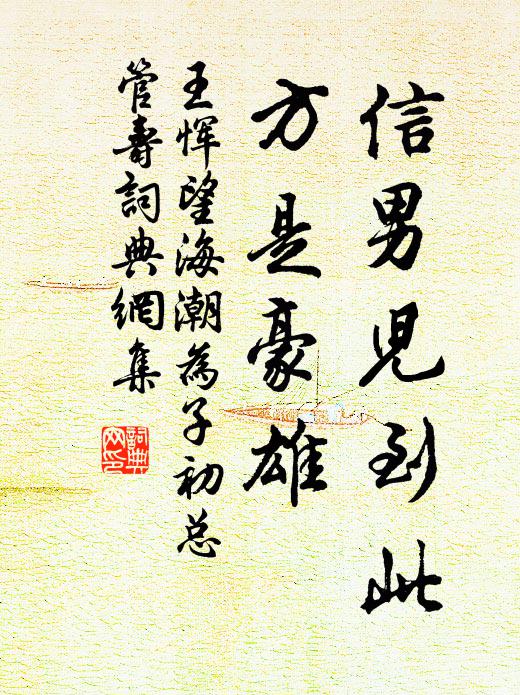 信男児到此
方是豪雄
王恽望海潮為子初总
管壽詞典網集
詞典
网印